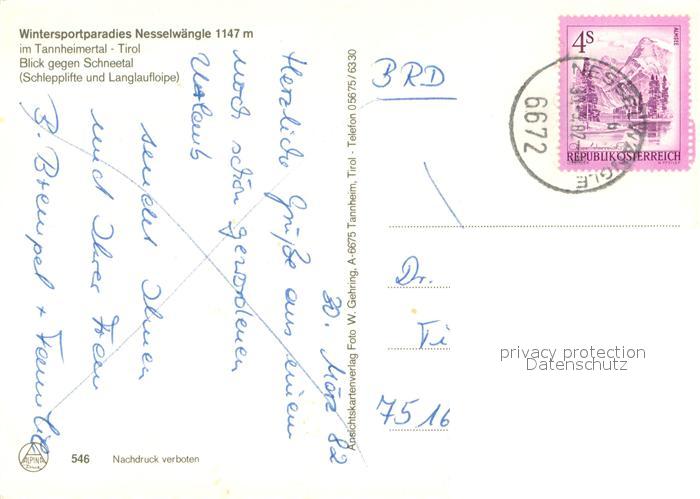 Wintersportparadies Nesselwängle 1147 m
im Tannheimertal - Tirol
Blick gegen Schneetal
(Schlepplifte und Langlaufloipe)
30. März 82
Herzliche Grüße aus einem
noch schön gewordenen
Urlaub
sendet Ihnen
und Ihrer Frau
B. Brempel + Familie
ALPINA
546 Nachdruck verboten
Ansichtskartenverlag Foto W. Gehring, A-6675 Tannheim, Tirol - Telefon 05675/6330
4 S
ALMSEE
REPUBLIK ÖSTERREICH
NESSELWÄNGLE
6672
BRD
Dr.
Ti
7516
privacy protection
Datenschutz